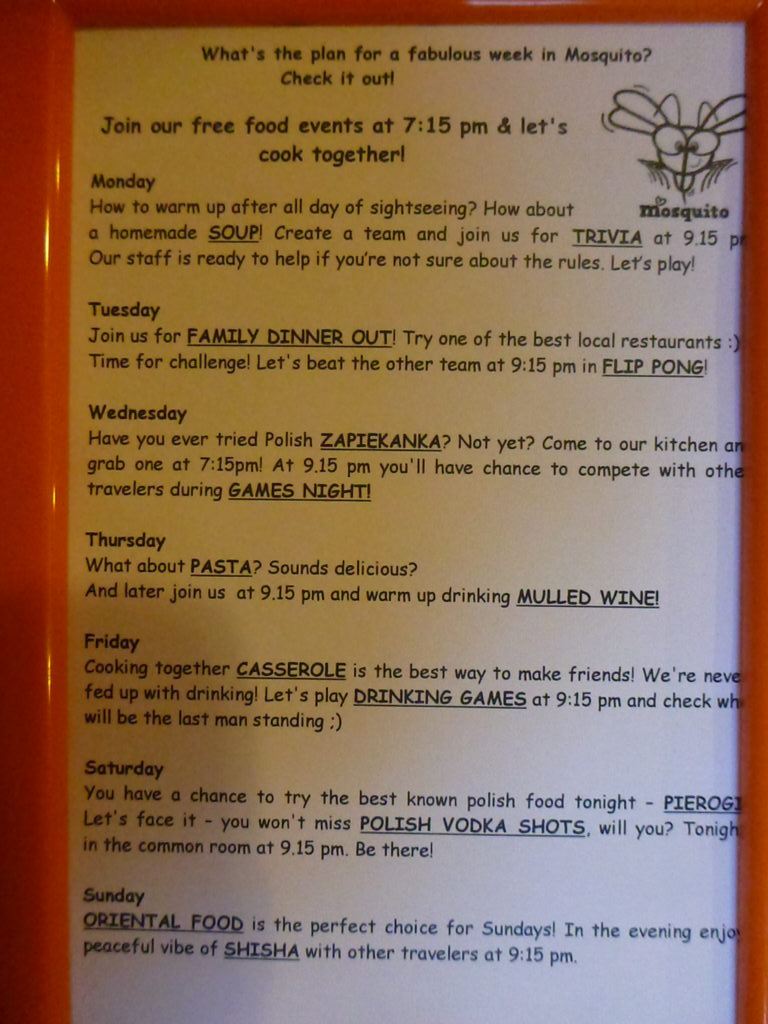 What's the plan for a fabulous week in Mosquito?
Check it out!
Join our free food events at 7:15 pm & let's
cook together!
mosquito
Monday
How to warm up after all day of sightseeing? How about
a homemade SOUP! Create a team and join us for TRIVIA at 9.15
Our staff is ready to help if you're not sure about the rules. Let's play!
Tuesday
Join us for FAMILY DINNER OUT! Try one of the best local restaurants :)
Time for challenge! Let's beat the other team at 9:15 pm in FLIP PONG!
Wednesday
Have you ever tried Polish ZAPIEKANKA? Not yet? Come to our kitchen an
grab one at 7:15pm! At 9.15 pm you'll have chance to compete with othe
travelers during GAMES NIGHT!
Thursday
What about PASTA? Sounds delicious?
And later join us at 9.15 pm and warm up drinking MULLED WINE!
Friday
Cooking together CASSEROLE is the best way to make friends! We're neve
fed up with drinking! Let's play DRINKING GAMES at 9:15 pm and check wh
will be the last man standing ;)
Saturday
You have a chance to try the best known polish food tonight - PIEROGI
Let's face it - you won't miss POLISH VODKA SHOTS, will you? Tonigh
in the common room at 9.15 pm. Be there!
Sunday
ORIENTAL FOOD is the perfect choice for Sundays! In the evening enjo
peaceful vibe of SHISHA with other travelers at 9:15 pm.